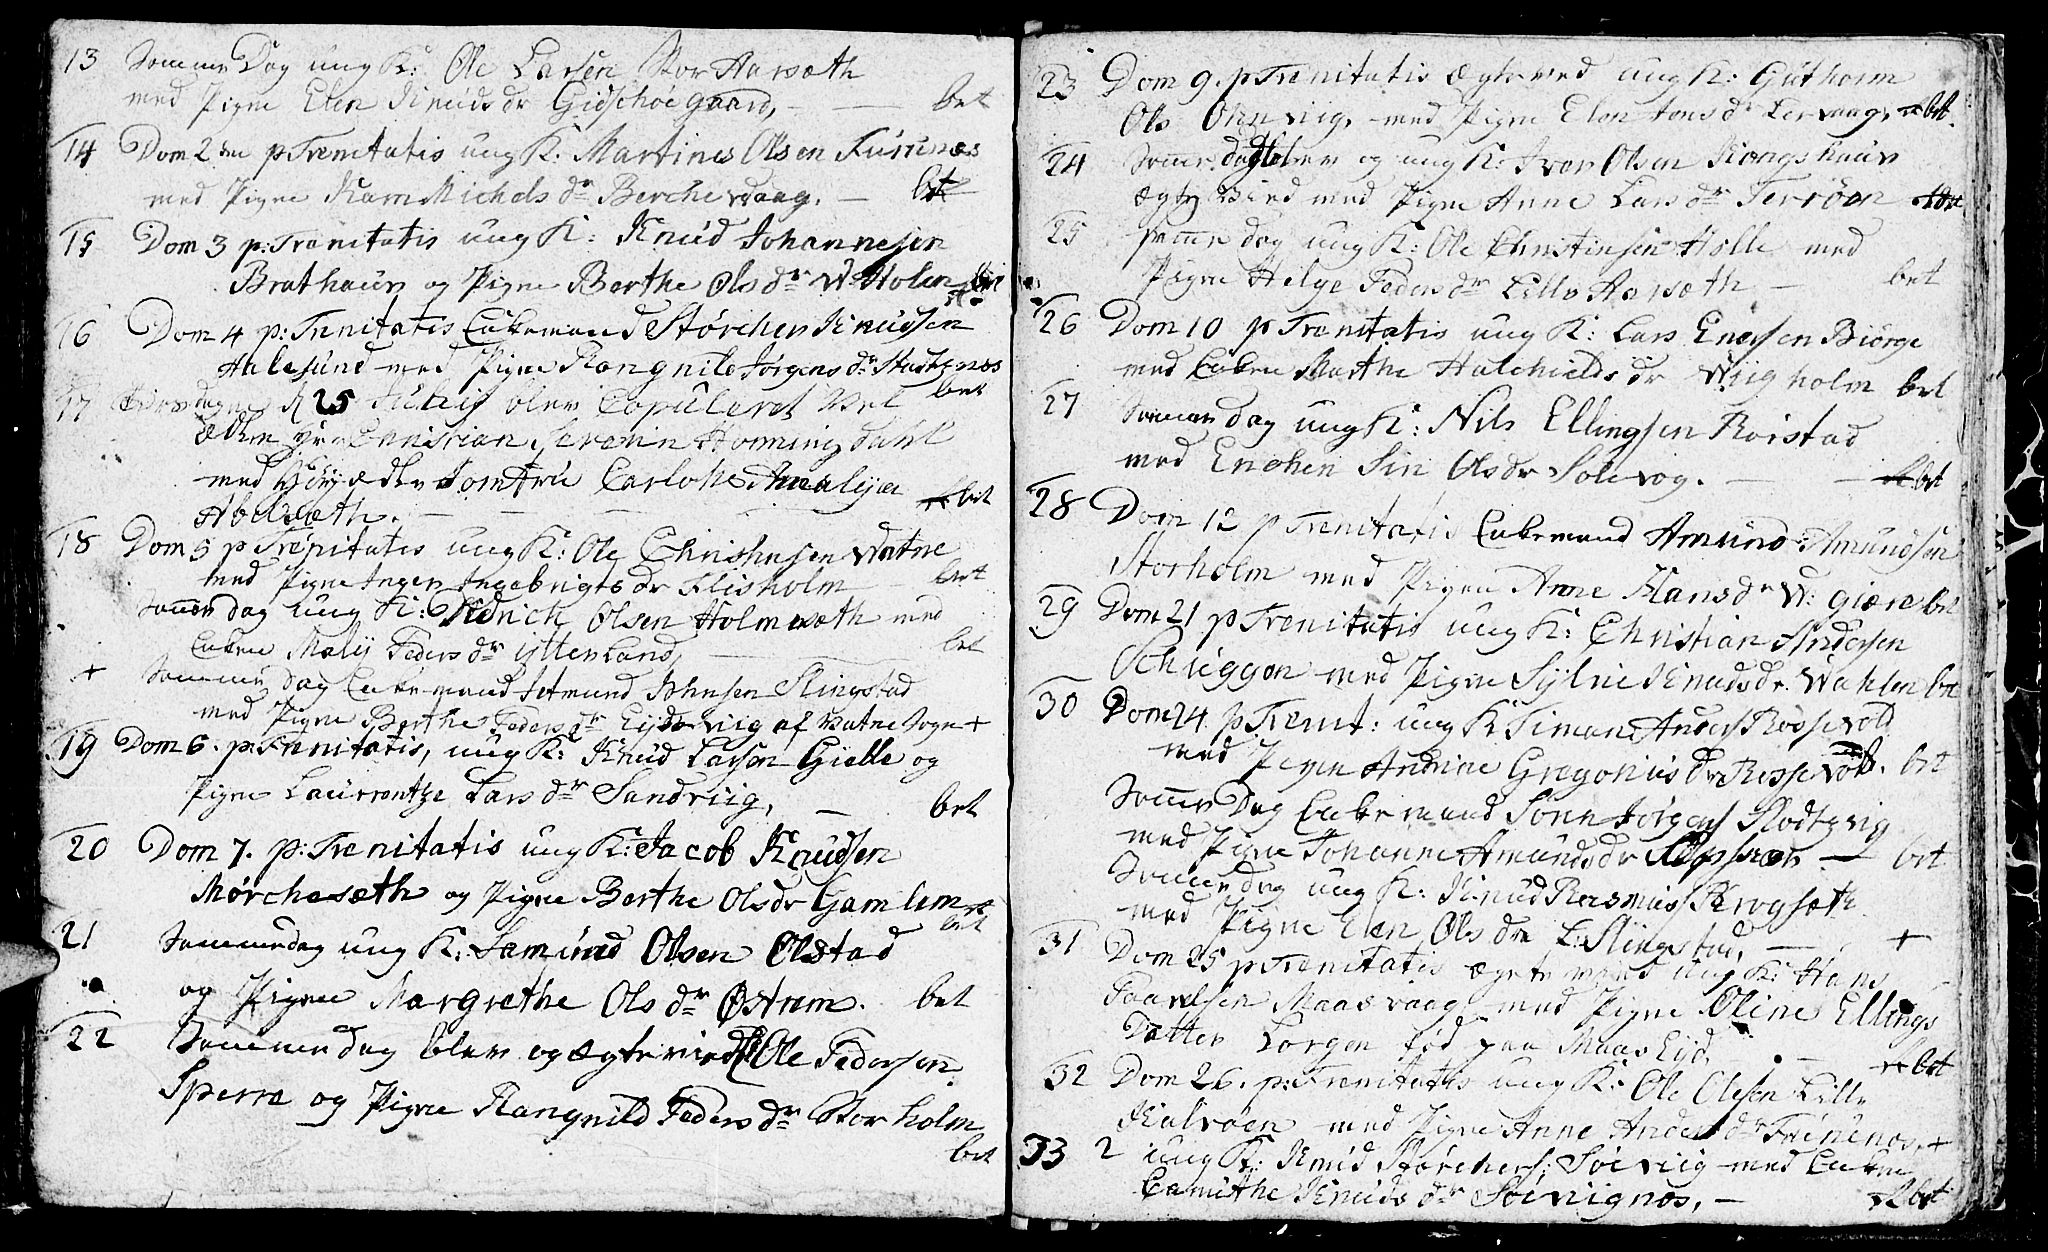 13 Samme Dag ung K: Ole Larsen Stor Harsæth
med Pigen Elen Knudsdr Gidschøegaard, — bet
14 Dom 2 den p Trenitatis ung K: Martines Olsen Furenæs
med Pigen Karn Michels dr Berchevaag. — bet
15 Dom 3 p: Trenitatis ung K: Knud Johannesen
Brathaun og Pigen Berthe Ols dr W: Holen
16 Dom 4 p: Trenitatis Enkemand Størcher Knudsen
Halesund med Pigen Rangnild Jørgens dr
bet
17 25 Julij blev Copuleret Vel
ædlen Christian Severin Honningdahl
med Jomfru Carlotte Amalija
bet
18 Dom 5 p Trenitatis ung K: Ole Christensen Watne
med Pigen Inger Ingebrigts dr Flisholm bet
Samme dag ung K: Fredrich Olsen Holmesæth med
Enken Malij Peders dr Ytterland, — bet
+ Samme dag Enkemand Jetmund Johnsen Slingstad
med Pigen Berthe Peders dr Eijdsviig af Vatne Sogn +
19 Dom 6. p: Trenitatis, ung K: Knud Larsen Gielle og
Pigen Laurentze Lars dr Sandviig, — bet
20 Dom 7. p: Trenitatis ung K: Jacob Knudsen
Mørchesæth og Pigen Berthe Olsdr Gamlem
bet
21 Sammedag ung K: Samund Olsen Olstad
og Pigen Margrethe Ols dr Østrem. bet
22 Sammedag blev og ægtevied Ole Pedersen
Sperre og Pigen Rangnild Peders dr Storholm
bet
23 Dom 9. p Trenitatis Ægteviied ung K: Guthorm
Ols med Pigen Elen Jons dr Lervaag, bet.
24 Samme dag blev og ung K: Iver Olsen Kongshaun
Ægteviied med Pigen Anne Lars dr Terrøen
25 Samme dag ung K: Ole Christensen Holle med
Pigen Helge Peders dr Lille Harsæth — bet
26 Dom 10 p Trenitatis ung K: Lars Enersen Biørge
med Enken Marthe dr Wiigholm bet
27 Samme dag ung K: Nils Ellingsen Rørstad
med Enchen Siri Olsdr Solevog. — bet
28 Dom 12 p Trenitatis Enkemand Amund: Amundsen
Storholm med Pigen Anne Hans dr W: giære bet
29 Dom 21 p Trenitatis ung K: Christian Andersen
Schuggen med Pigen Sylvie Knudsdr. Wahlen bet
30 Dom 24. p Trenit: ung K Simon Anders Rossevold
med Pigen Andrine Gregorius dr Rossevold. bet
Samme Dag Enkemand Søren Jørgens Slodtzvig
med Pigen Johanne Amunds dr — bet
Samme dag ung K: Knud Rasmus Krogsæth
med Pigen Elen Ols dr L: Slingstad, — +
31 Dom 25 p Trenitatis ægteviied ung K: Hans
Paavelsen Maasvaag med Pigen Oline Ellings
Datter Lorgen fød paa Maas Eijd. — bet
32 Dom 26. p: Trenitatis ung K: Ole Olesen Lille
Kalvøen med Pigen Anne Anders dr +
33 2 ung K: Knud Størchers: Søeviig med Enken
Camithe Knuds dr Søevignæs, — bet